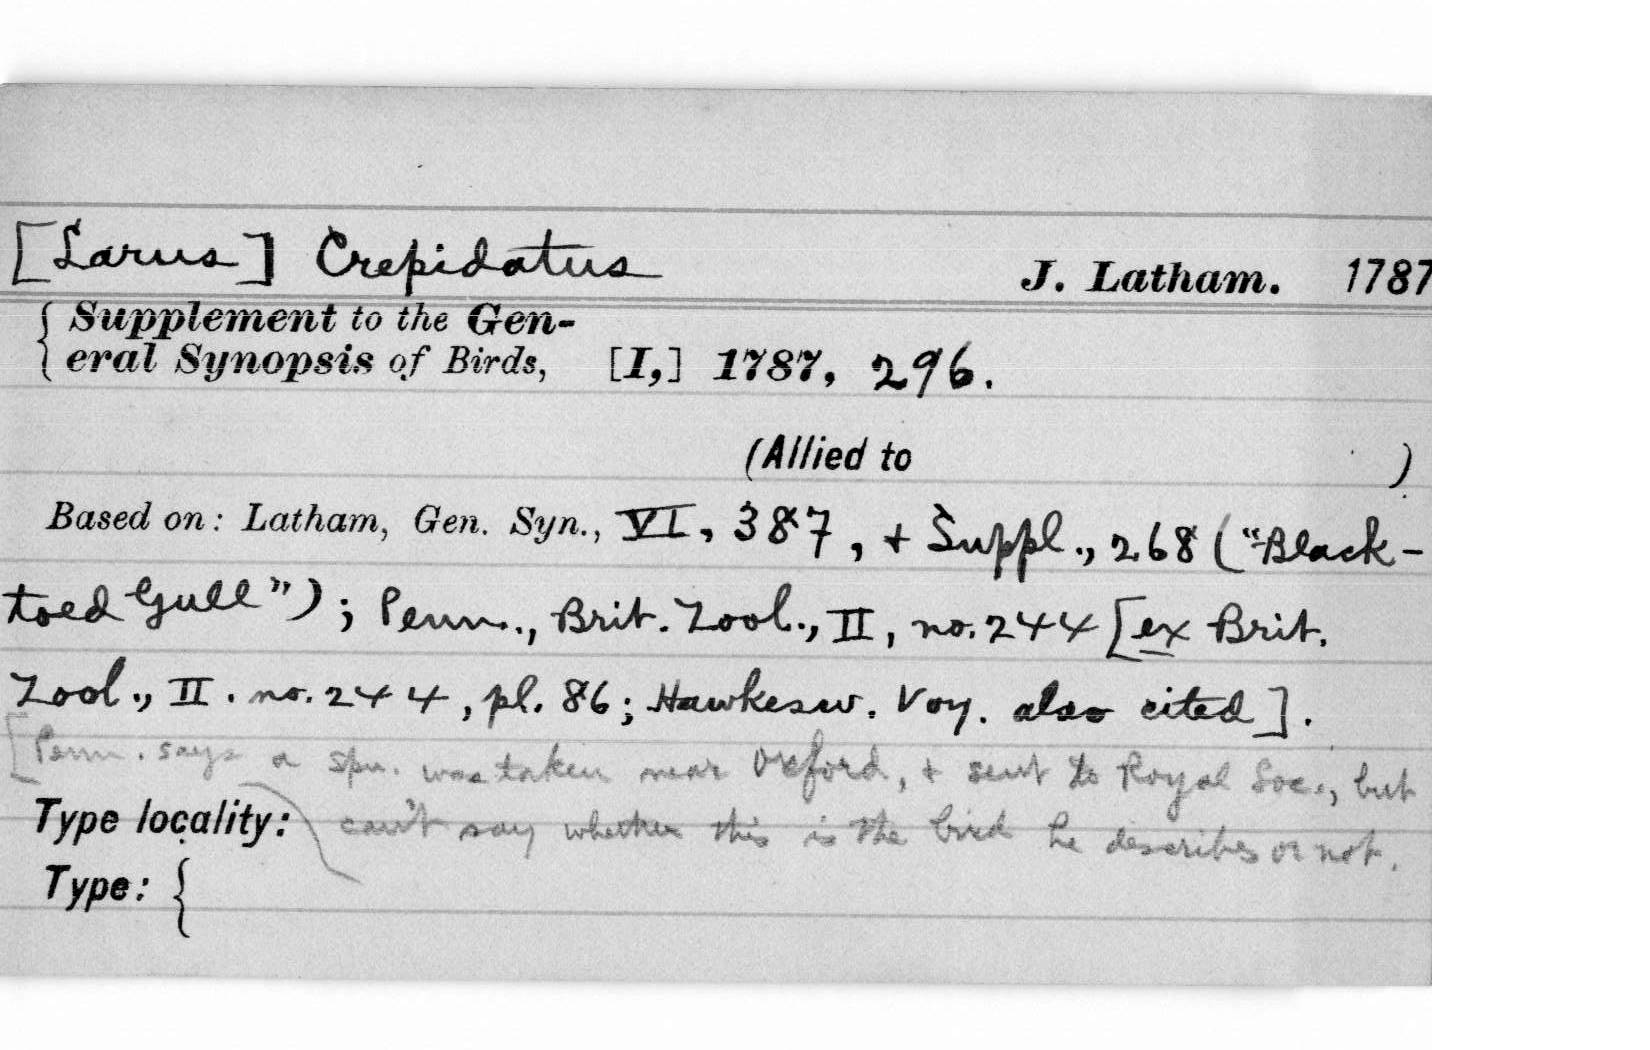 [Larus] Crepidatus J. Latham. 1787
{ Supplement to the Gen-
eral Synopsis of Birds, [I,] 1787, 296.
(Allied to )
Based on: Latham, Gen. Syn., VI, 387, + Suppl., 268 ("Black-
toed Gull"); Penn., Brit. Zool., II, no. 244 [ex Brit.
Zool., II. no. 244, pl. 86; Hawkesw. Voy. also cited].
[Penn. says a spn. was taken near Oxford, + sent to Royal Soc., but
Type locality: can't say whether this is the bird he describes or not.
Type: {